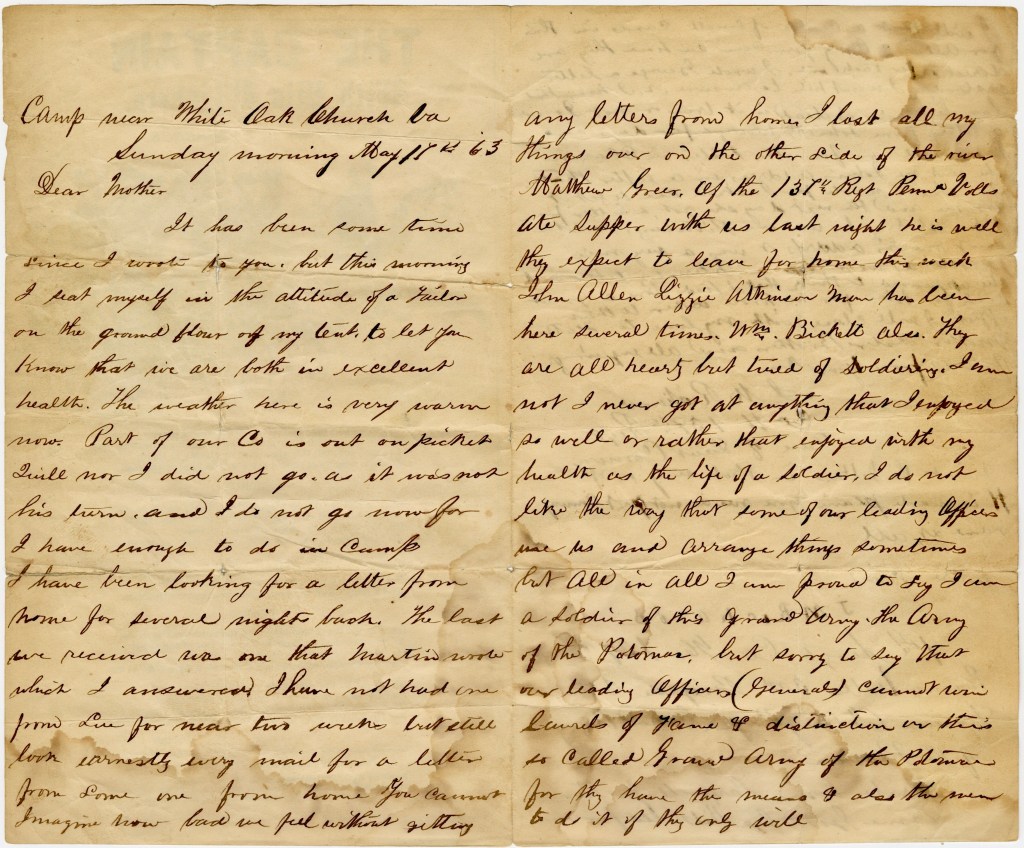 Camp near White Oak Church Va
Sunday morning May 17th 63
Dear Mother
It has been some time
since I wrote to you. but this morning
I seat myself in the attitude of a Tailor
on the ground flour of my tent. to let you
Know that we are both in excellent
health. The weather here is very warm
now. Part of our Co is out on picket
Will nor I did not go. as it was not
his turn. and I do not go now for
I have enough to do in Camp
I have been looking for a letter from
home for several nights back. The last
we received was one that Martin wrote
which I answered I have not had one
from Lue for near two weeks but still
look earnestly every mail for a letter
from some one from home You cannot
Imagine how bad we feel without gitting
any letters from home. I lost all my
things over on the other side of the river
Matthew Greer. Of the 137th Regt Penna Volls
ate supper with us last night he is well
they expect to leave for home this week
John Allen Lizzie Atkinson Man has been
here several times. Wm. Bickett also. They
are all hearty but tired of soldiering. I am
not I never got at anything that I enjoyed
so well or rather that enjoyed with my
health as the life of a soldier. I do not
like the way that some of our leading Officers
use us and arrange things sometimes
but all in all I am proud to say I am
a soldier of this grand Army. the Army
of the Potomac. but sorry to say that
our leading Officers (Generals) cannot win
laurels of Fame & distinction in this
so called Grand Army of the Potomac
for they have the means & also the men
to do it if they only will